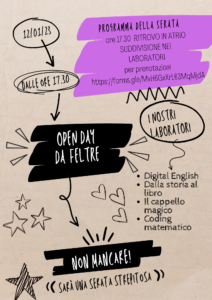 12/01/23
PROGRAMMA DELLA SERATA
ore 17.30 RITROVO IN ATRIO
SUDDIVISIONE NEI
LABORATORI
per prenotazioni
DALLE ORE 17.30
OPEN DAY
DA FELTRE
I NOSTRI
LABORATORI
Digital English
Dalla storia al
libro
Il cappello
magico
Coding
matematico
NON MANCARE!
SARÀ UNA SERATA STREPITOSA